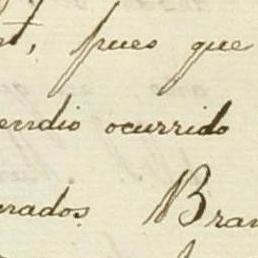 t, pues que
endio ocurrido
rados. Bran